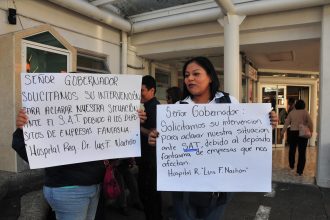 SEÑOR GOBERNADOR
SOLICITAMOS SU INTERVENCIÓN
PARA ACLARAR NUESTRA SITUACIÓN
ANTE EL S.A.T DEBIDO A LOS DEPO
SITOS DE EMPRESAS FANTASMA
Hospital Reg. Dr. Luis F. Nachón
Señor Gobernador:
Solicitamos su intervencion
para aclarar nuestra situacion
ante S.A.T. debido al depósito
fantasma de empresas que nos
afectan.
Hospital R. "Luis F. Nachon"